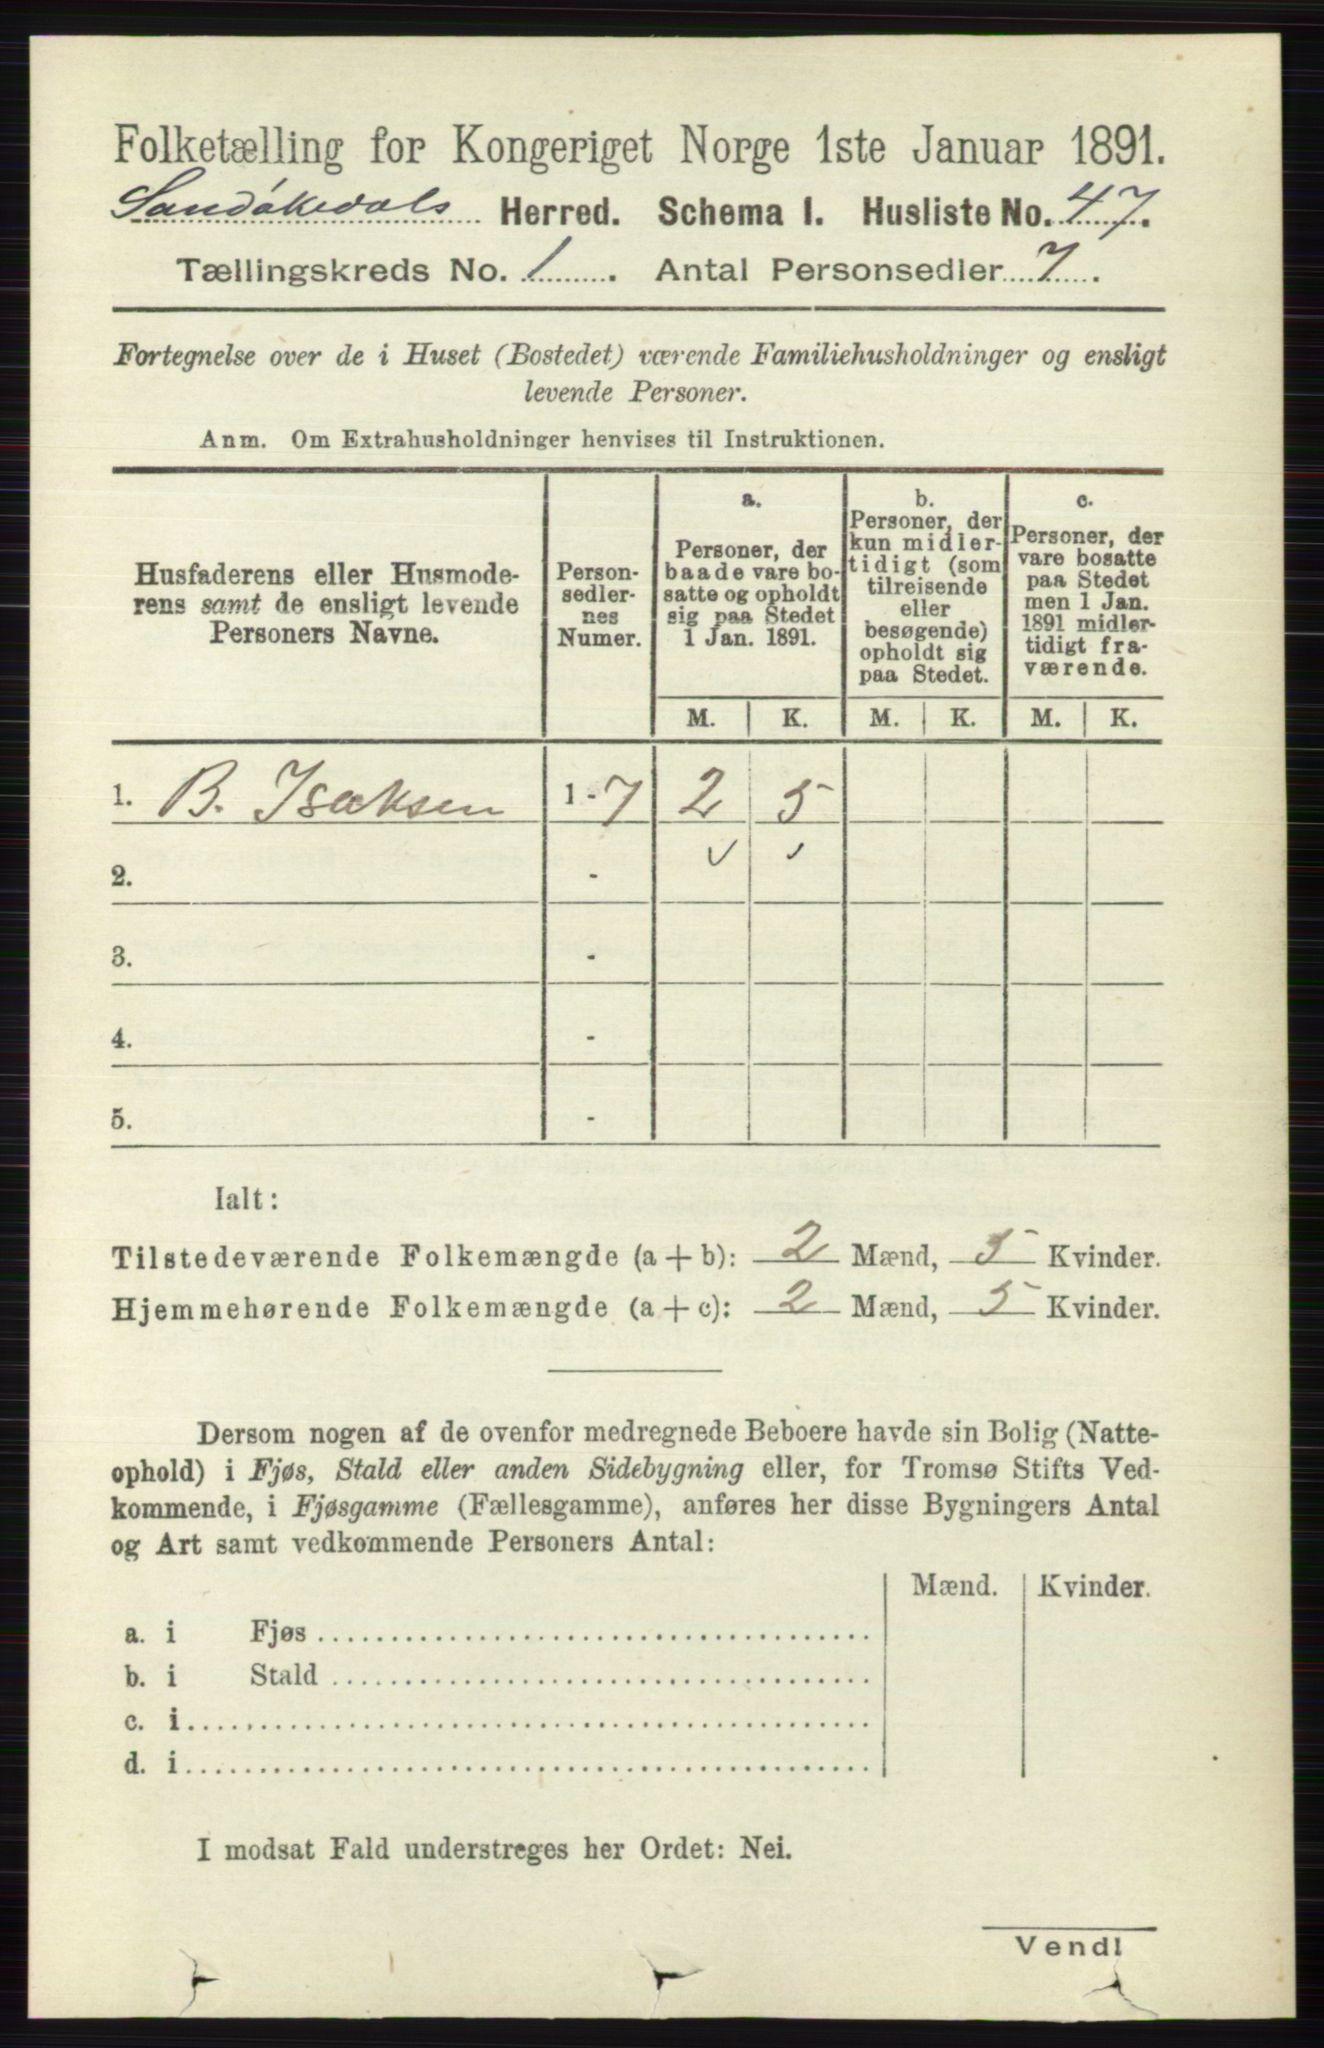 Folketælling for Kongeriget Norge 1ste Januar 1891.
Sandøkedals Herred. Schema I. Husliste No. 47.
Tællingskreds No. 1. Antal Personsedler 7.
Fortegnelse over de i Huset (Bostedet) værende Familiehusholdninger og ensligt
levende Personer.
Anm. Om Extrahusholdninger henvises til Instruktionen.
Husfaderens eller Husmode-
rens samt de ensligt levende
Personers Navne.
Person-
sedler-
nes
Numer.
a.
Personer, der
baade vare bo-
satte og opholdt
sig paa Stedet
1 Jan. 1891.
b.
Personer, der
kun midler-
tidigt (som
tilreisende
eller
besøgende)
opholdt sig
paa Stedet.
c.
Personer, der
vare bosatte
paa Stedet
men 1 Jan.
1891 midler-
tidigt fra-
værende.
M. K. M. K. M. K.
1. B. Isaksen 1-7 2 5
2. - ✓ ✓
3. -
4. -
5. -
Ialt:
Tilstedeværende Folkemængde (a + b): 2 Mænd, 5 Kvinder.
Hjemmehørende Folkemængde (a + c): 2 Mænd, 5 Kvinder.
Dersom nogen af de ovenfor medregnede Beboere havde sin Bolig (Natte-
ophold) i Fjøs, Stald eller anden Sidebygning eller, for Tromsø Stifts Ved-
kommende, i Fjøsgamme (Fællesgamme), anføres her disse Bygningers Antal
og Art samt vedkommende Personers Antal:
Mænd. Kvinder.
a. i Fjøs
b. i Stald
c. i
d. i
I modsat Fald understreges her Ordet: Nei.
Vend!